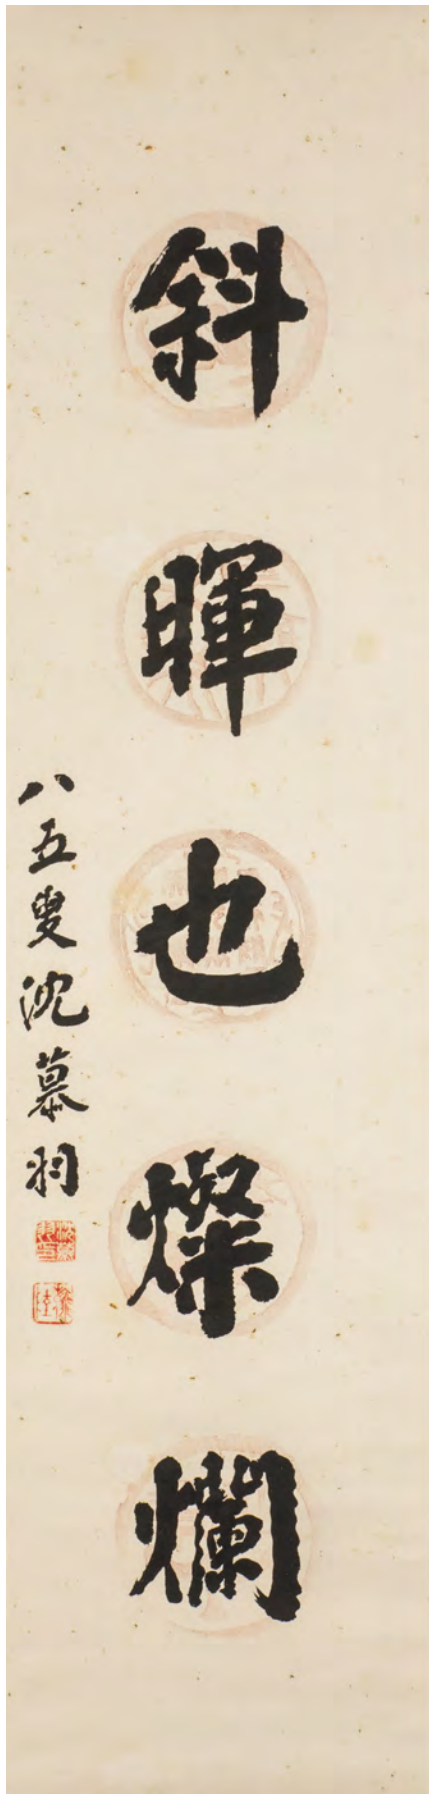 斜暉也燦爛
八五叟沈慕羽